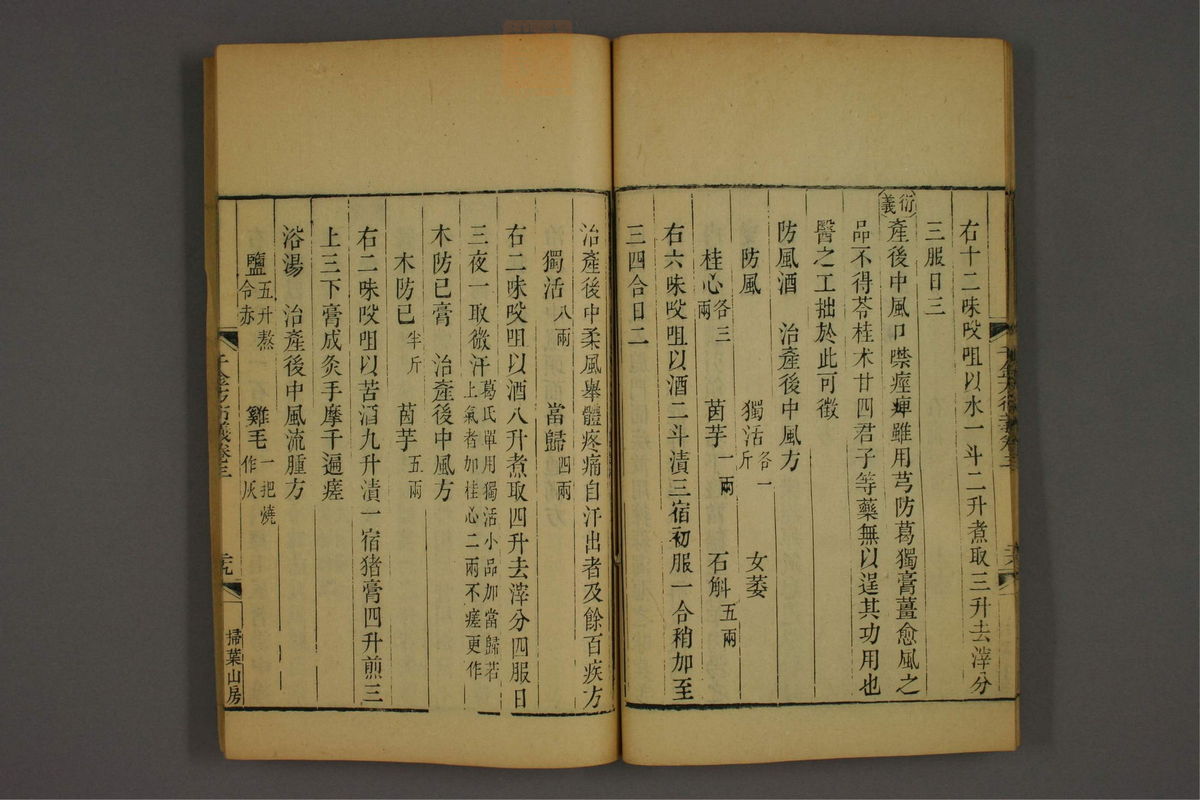 右十二味㕮咀以水一斗二升煮取三升去滓分
三服日三
衍義 產後中風口噤痙痺雖用芎防葛獨膏薑愈風之
品不得苓桂术甘四君子等藥無以逞其功用也
醫之工拙於此可徵
防風酒 治產後中風方
防風 獨活各一斤 女萎
桂心各三兩 茵芋一兩 石斛五兩
右六味㕮咀以酒二斗漬三宿初服一合稍加至
三四合日二
治產後中柔風舉體疼痛自汗出者及餘百疾方
獨活八兩 當歸四兩
右二味㕮咀以酒八升煮取四升去滓分四服日
三夜一取微汗葛氏單用獨活小品加當歸若上氣者加桂心二兩不瘥更作
木防已膏 治產後中風方
木防已半斤 茵芋五兩
右二味㕮咀以苦酒九升漬一宿猪膏四升煎三
上三下膏成灸手摩千遍瘥
浴湯 治產後中風流腫方
鹽五升熬令赤 雞毛一把燒作灰
千金方衍義卷三
掃葉山房